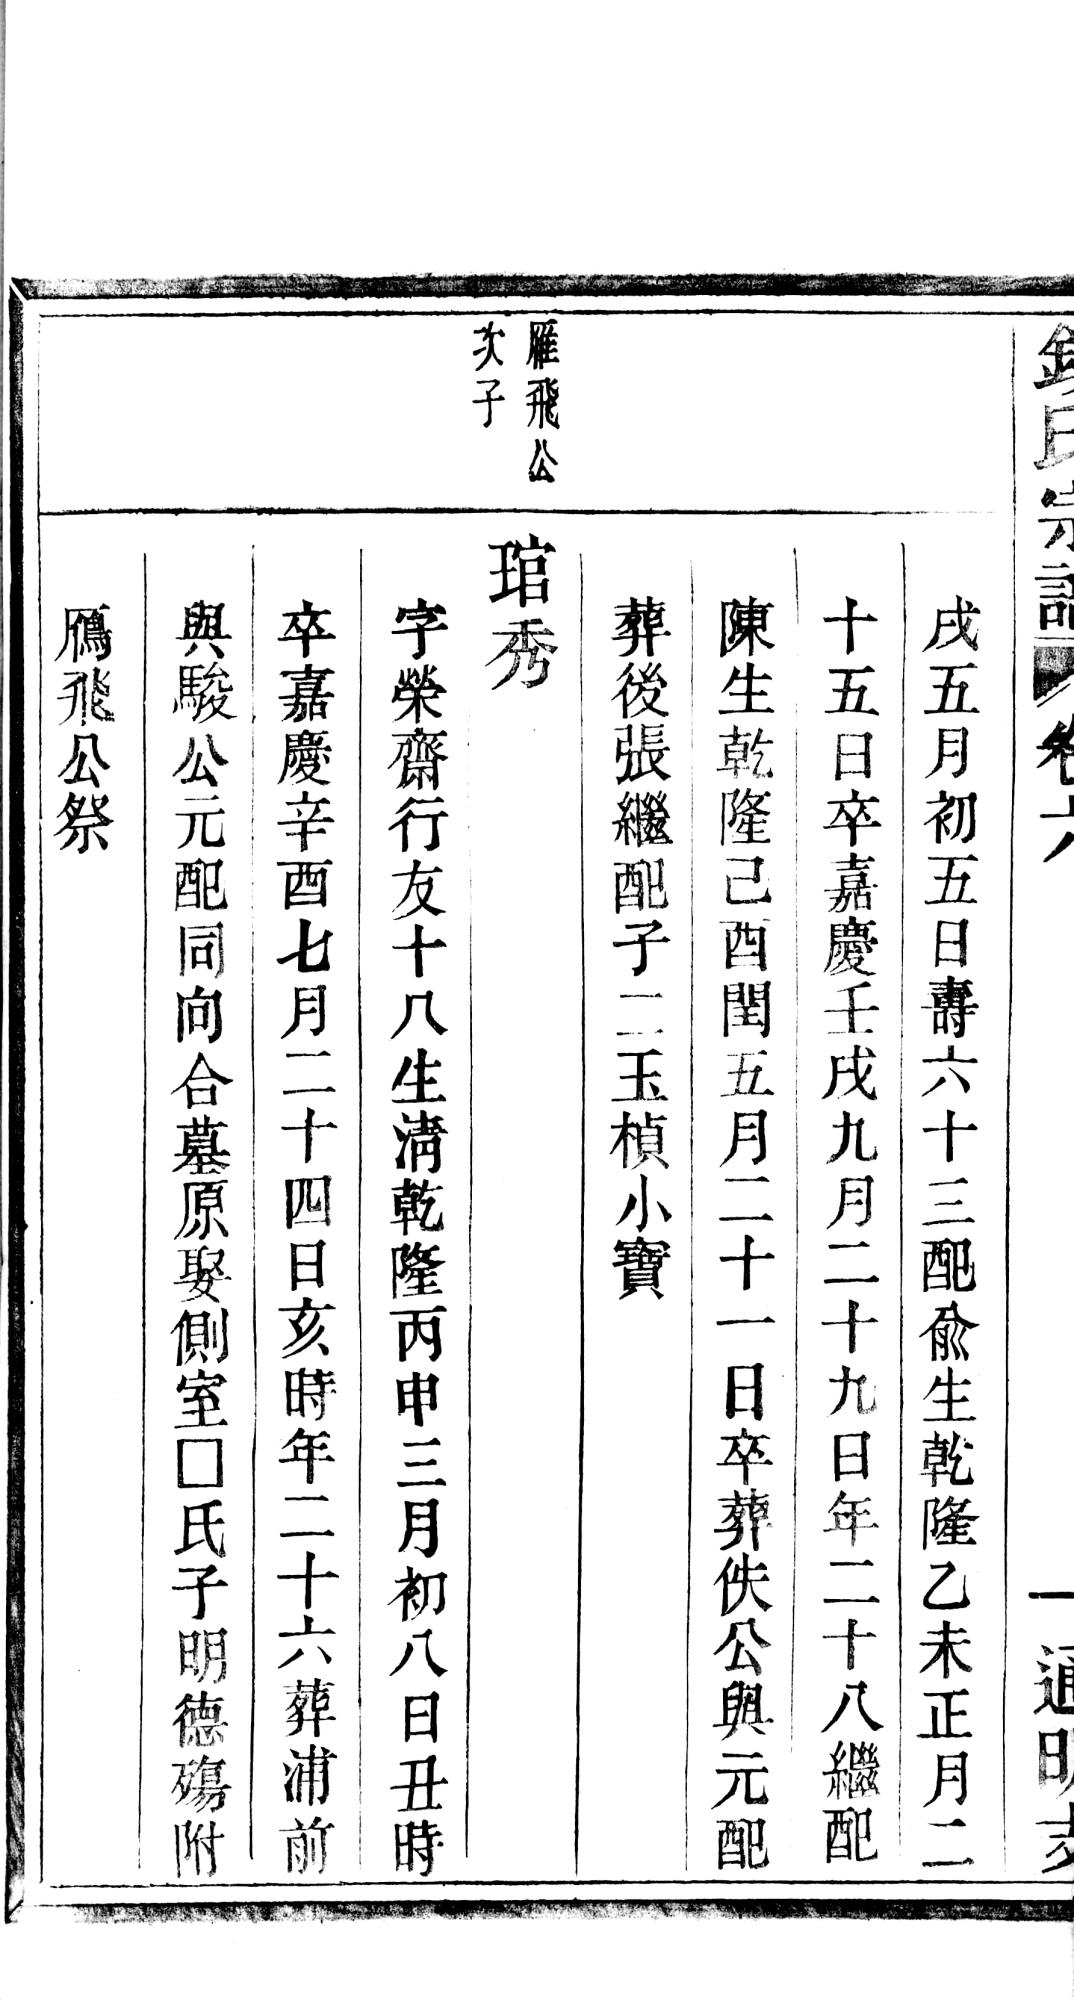 氏宗譜 卷六 一 通明支
戌五月初五日壽六十三配俞生乾隆乙未正月二
十五日卒嘉慶壬戌九月二十九日年二十八繼配
陳生乾隆己酉閏五月二十一日卒葬佚公與元配
葬後張繼配子二玉楨小寶
雁飛公
次子
琯秀
字榮齋行友十八生清乾隆丙申三月初八日丑時
卒嘉慶辛酉七月二十四日亥時年二十六葬浦前
與駿公元配同向合墓原娶側室□氏子明德殤附
鴈飛公祭